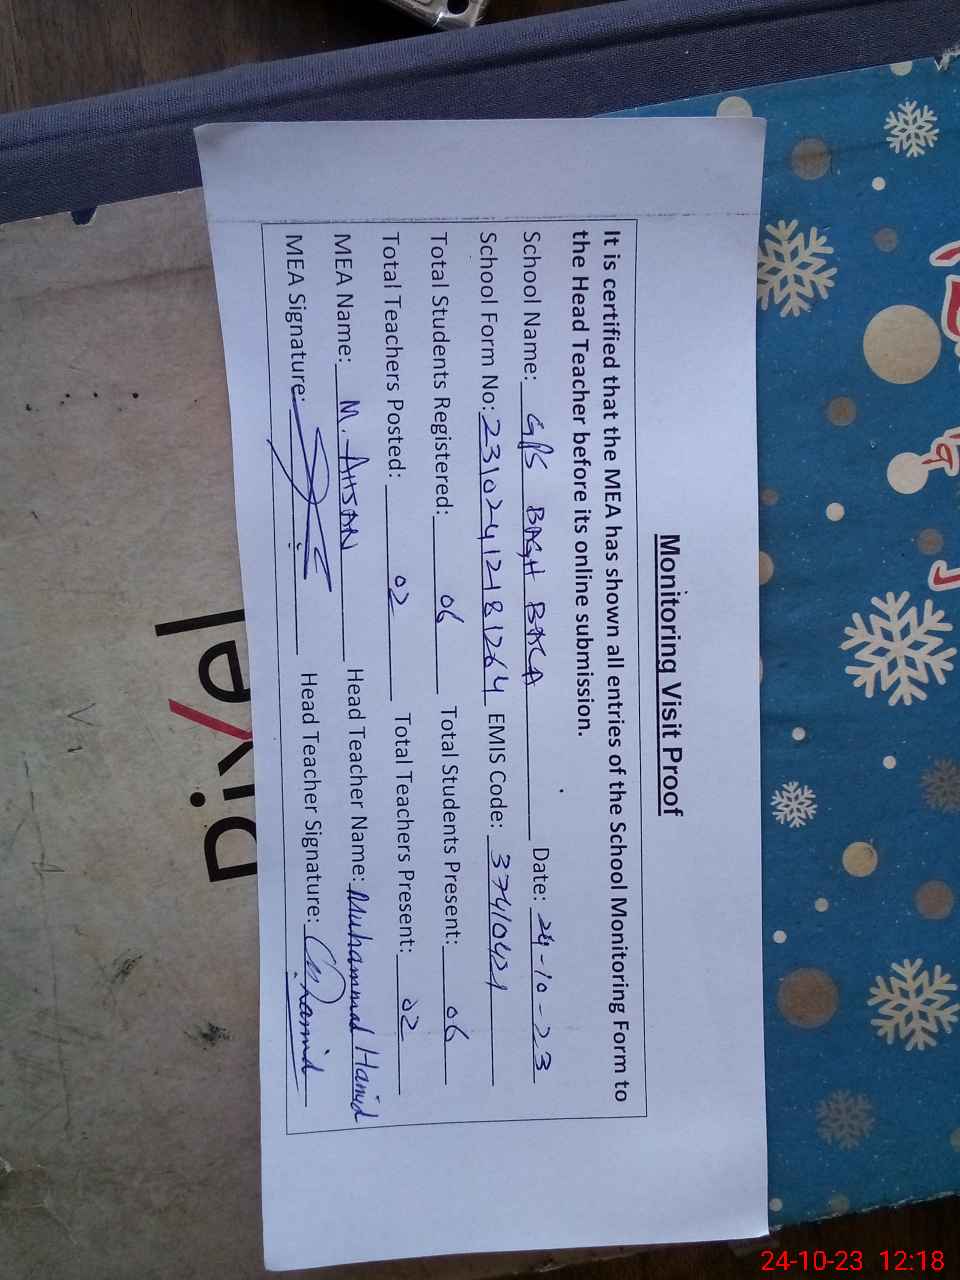 Monitoring Visit Proof
It is certified that the MEA has shown all entries of the School Monitoring Form to
the Head Teacher before its online submission.
School Name: GPS BAGH BALA Date: 24-10-23
School Form No: 23102412181264 EMIS Code: 37410421
Total Students Registered: 06 Total Students Present: 06
Total Teachers Posted: 02 Total Teachers Present: 02
MEA Name: M. AHSAN Head Teacher Name: Muhammad Hamid
MEA Signature: Head Teacher Signature:
pixel
24-10-23 12:18